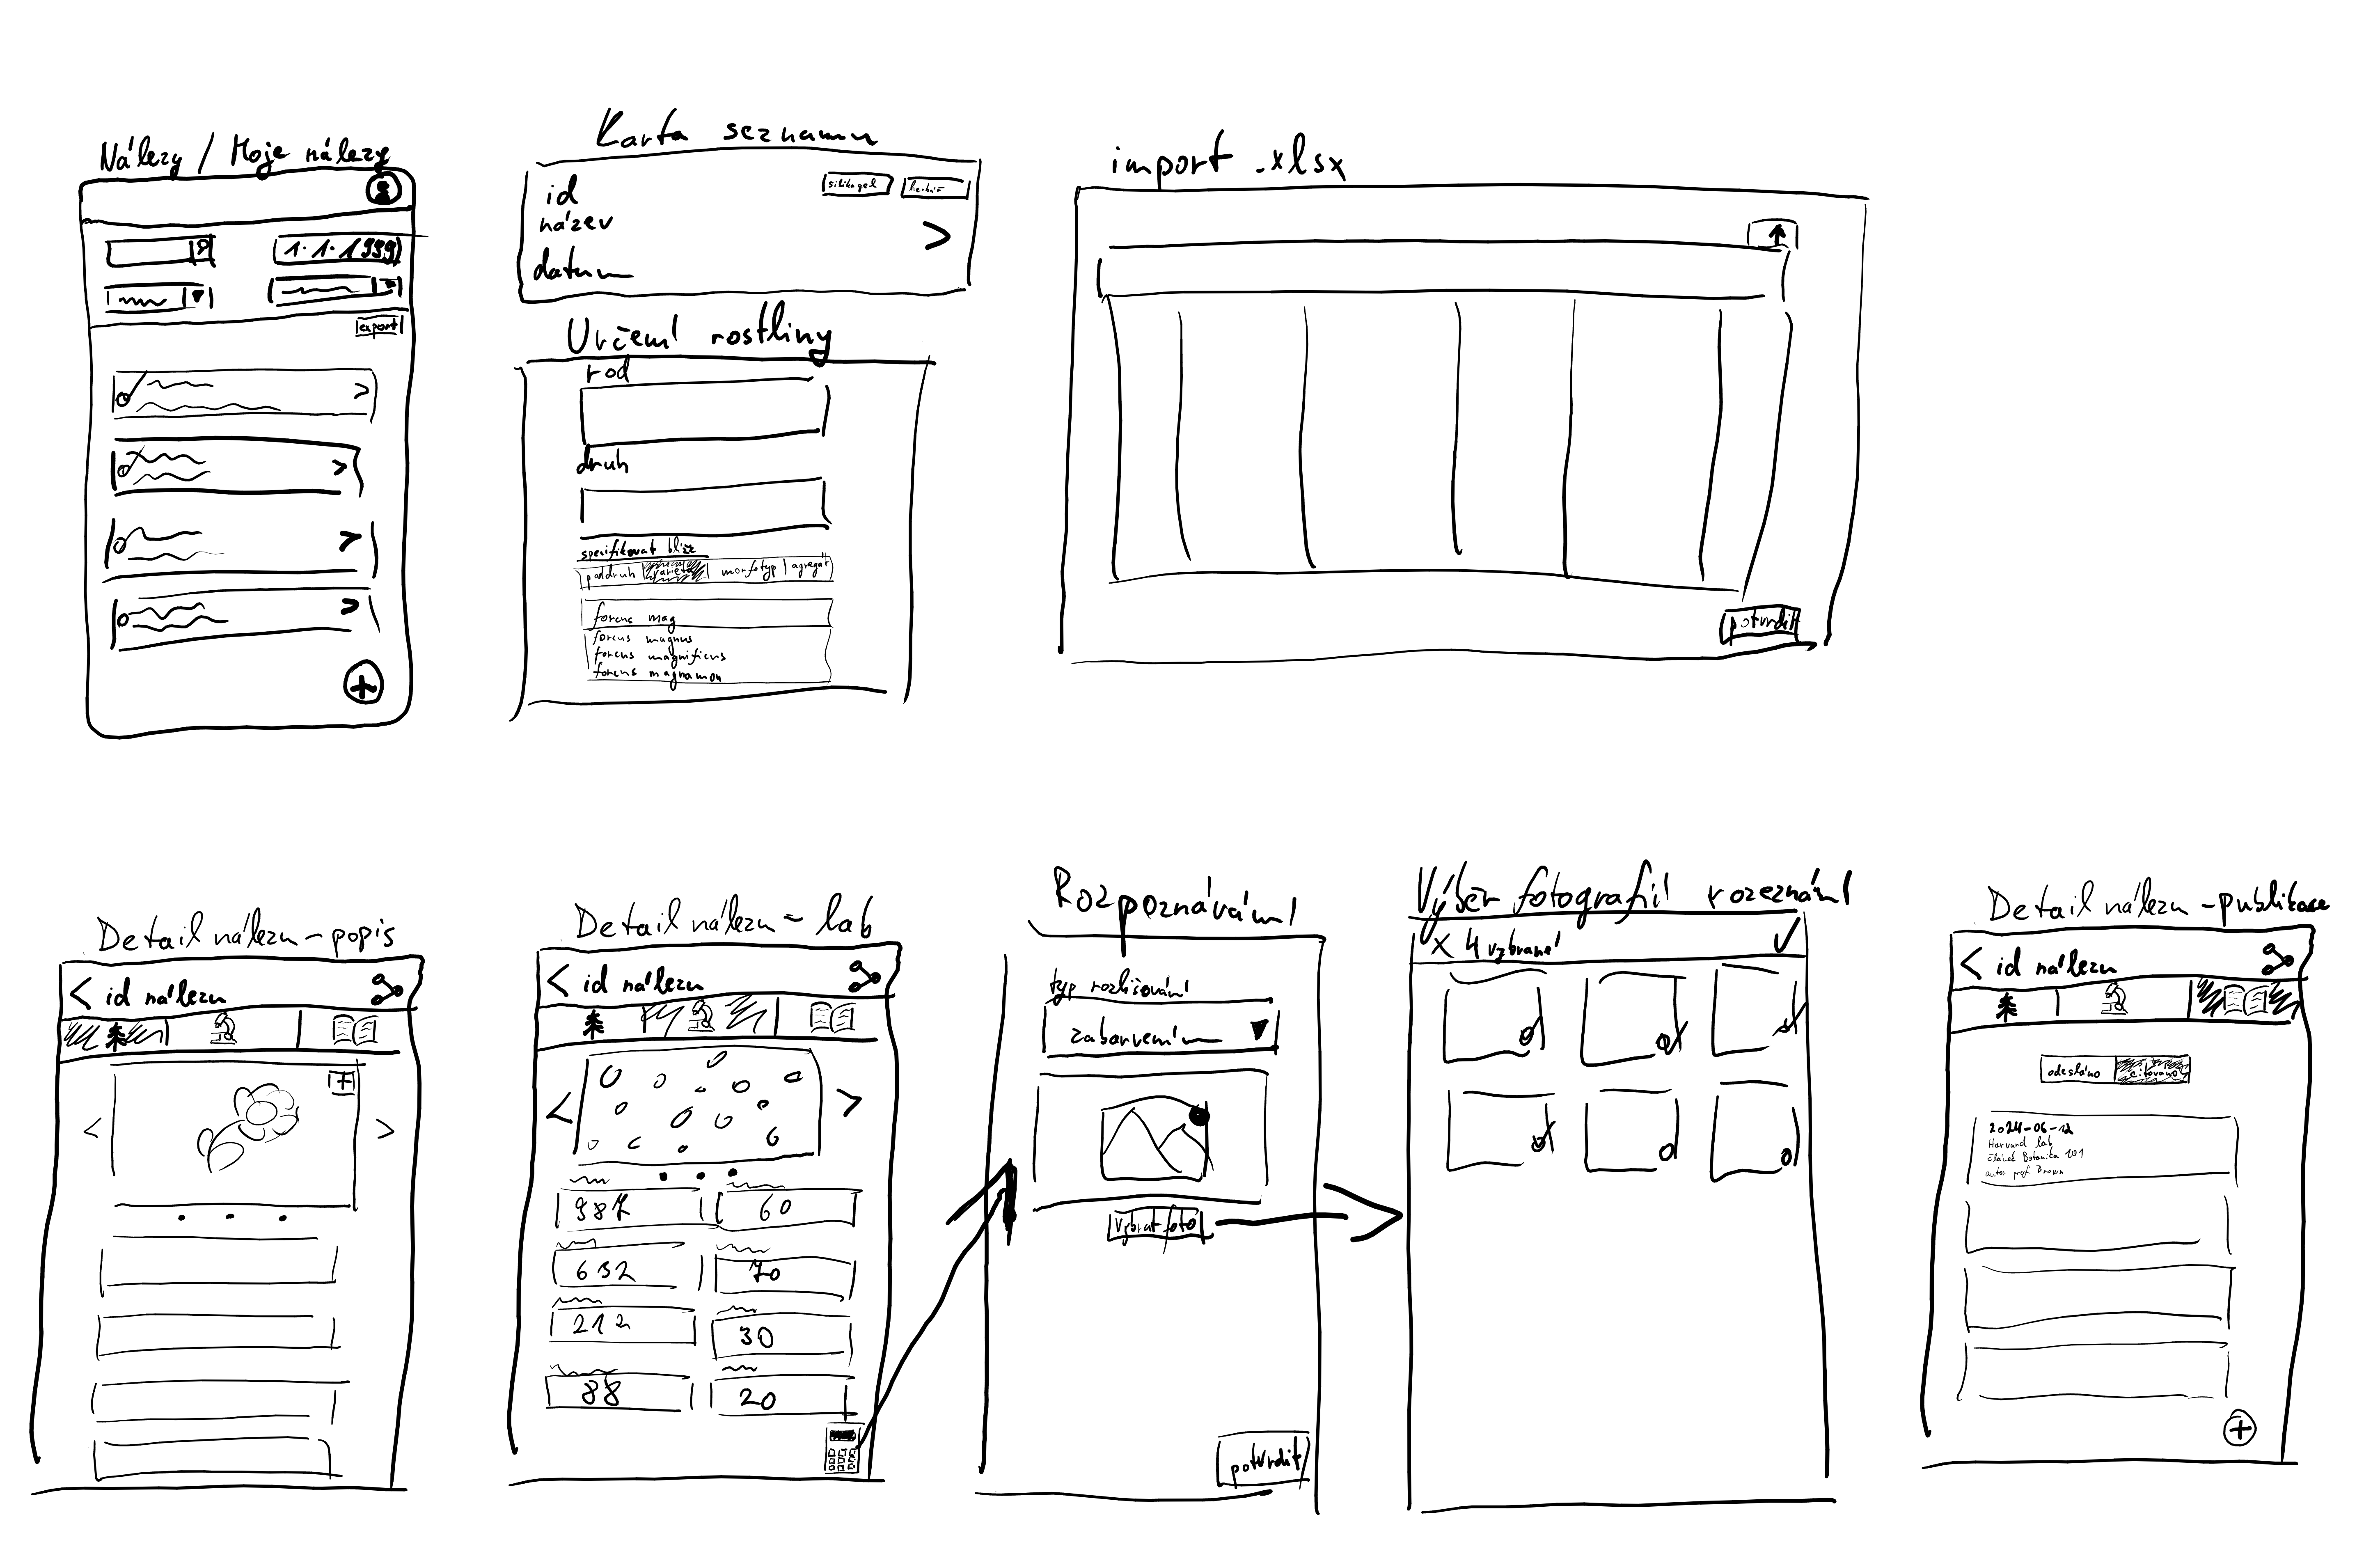 Nálezy / Moje nálezy
1.1.1999
export
Karta seznamu
id
název
datum
silikagel
herbář
Určení rostliny
rod
druh
specifikovat blíže
poddruh
varieta
morfotyp
agregát
forcus mag
forcus magnus
forcus magnificus
forcus magnamon
import .xlsx
potvrdit
Detail nálezu - popis
< id nálezu
Detail nálezu - lab
< id nálezu
987
60
632
70
212
30
88
20
Rozpoznávání
typ rozlišování
zabarvením
vybrat foto
potvrdit
Výběr fotografií rozeznání
X 4 vybrané
Detail nálezu - publikace
< id nálezu
odesláno
citováno
2024-06-12
Harvard lab
článek Botanica 101
autor prof. Brown